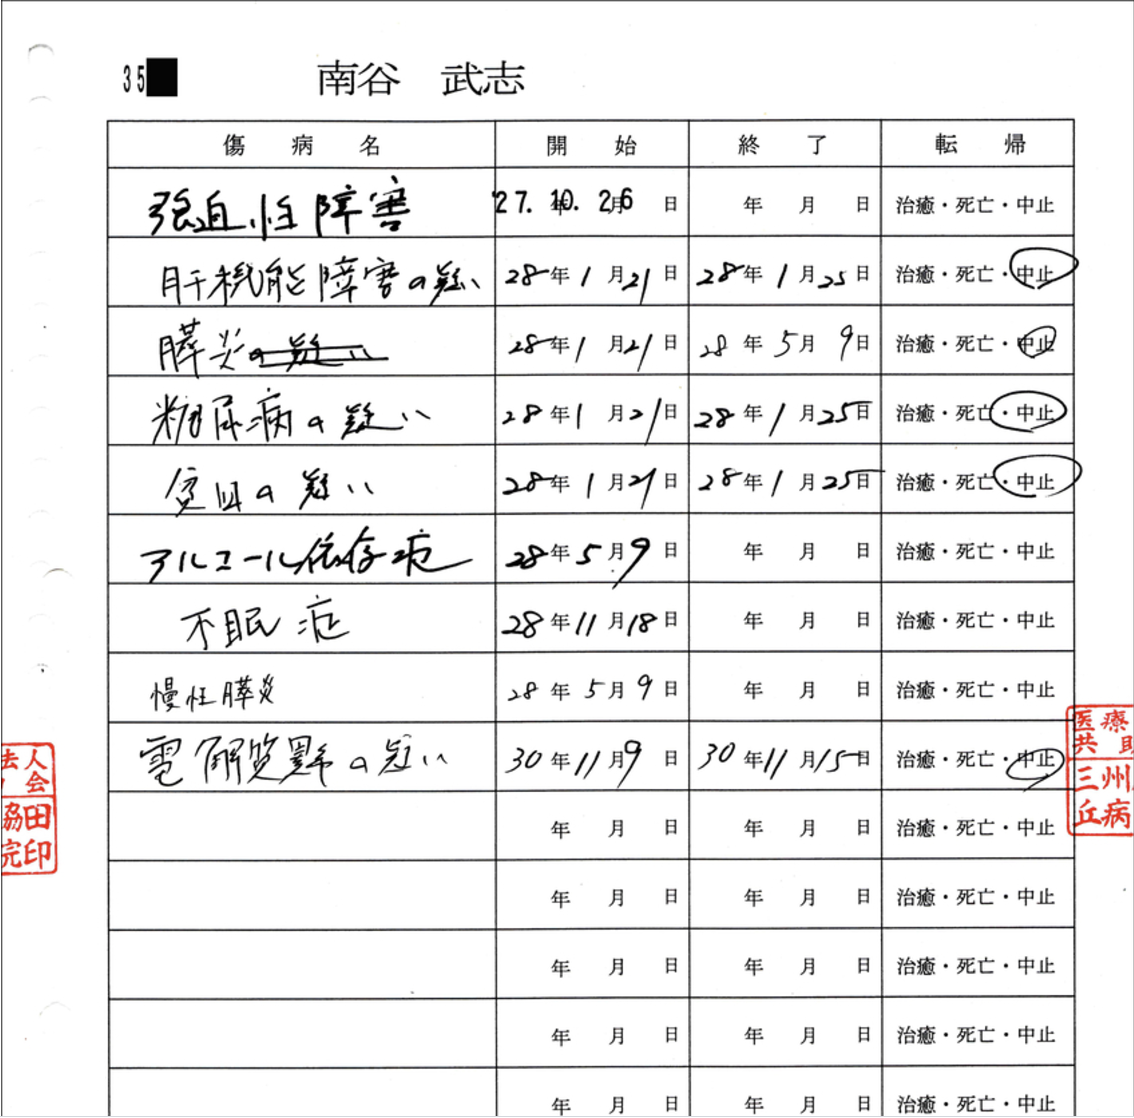 35
南谷 武志
傷病名 開始 終了 転帰
強迫性障害 '27.10.26 年 月 日 年 月 日 治癒・死亡・中止
肝機能障害の疑い 28年1月21日 28年1月25日 治癒・死亡・中止
膵炎の疑い 28年1月21日 28年5月9日 治癒・死亡・中止
糖尿病の疑い 28年1月21日 28年1月25日 治癒・死亡・中止
貧血の疑い 28年1月21日 28年1月25日 治癒・死亡・中止
アルコール依存症 28年5月9日 年 月 日 治癒・死亡・中止
不眠症 28年11月18日 年 月 日 治癒・死亡・中止
慢性膵炎 28年5月9日 年 月 日 治癒・死亡・中止
電解質異常の疑い 30年11月9日 30年11月15日 治癒・死亡・中止
年 月 日 年 月 日 治癒・死亡・中止
年 月 日 年 月 日 治癒・死亡・中止
年 月 日 年 月 日 治癒・死亡・中止
年 月 日 年 月 日 治癒・死亡・中止
年 月 日 年 月 日 治癒・死亡・中止
法人
会
協田
院印
医療
共助
三州
丘病